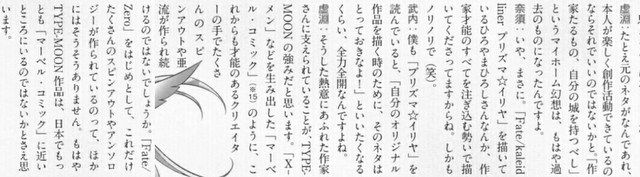 虚淵：たとえ元のネタがなんであれ、
本人が楽しく創作活動できているの
ならそれでいいのではないかと。「作
家たるもの、自分の城を持つべし」
というマイホーム幻想は、もはや過
去のものになったんですよ。
奈須：いや、まさに。『Fate/kaleid
liner プリズマ☆イリヤ』を描いて
いるひろやまひろしさんなんか、作
家才能のすべてを注ぎ込む勢いで描
いてくださってますからね。しかも
ノリノリで（笑）
武内：僕も『プリズマ☆イリヤ』を
読んでいると、「自分のオリジナル
作品を描く時のために、そのネタは
とっておきなよー！」といいたくなる
くらい、全力全開なんですよね。
虚淵：そうした熱意にあふれた作家
さんに支えられていることが、TYPE-
MOONの強みだと思います。『X-
メン』などを生み出した『マーベ
ル・コミック』（※15）のように、こ
れからも才能のあるクリエイタ
ーの手でたくさ
んのスピ
ンアウトや亜
流が作られ続
けるのではないでしょうか。『Fate/
Zero』をはじめとして、これだけ
たくさんのスピンアウトやアンソロ
ジーが作られているのって、ほか
にはそうそうありません。もはや
TYPE-MOON作品は、日本でもっ
とも『マーベル・コミック』に近い
ところにいるのではないかとさえ思